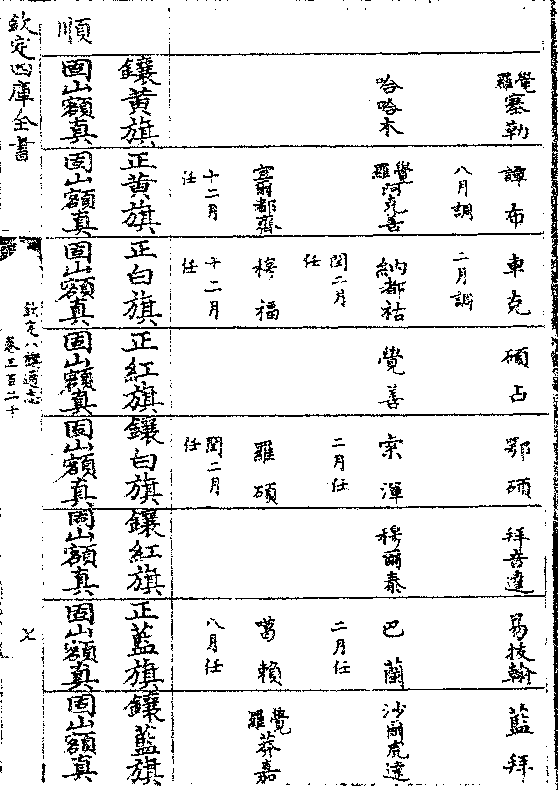 覺羅塞勒
譚布
八月調
車克
二月調
碩占
鄂碩
拜音達
藍拜
哈哈木
覺羅阿克善
納都祜
閏二月任
覺善
索渾
二月任
穆爾泰
巴蘭
二月任
沙爾虎達
宜爾都齊
十二月任
穆福
十二月任
羅碩
閏二月任
噶賴
八月任
覺羅莽嘉
順
鑲黃旗固山額真
正黃旗固山額真
正白旗固山額真
正紅旗固山額真
鑲白旗固山額真
鑲紅旗固山額真
正藍旗固山額真
鑲藍旗固山額真
欽定四庫全書
欽定八旗通志
卷三百二十
七